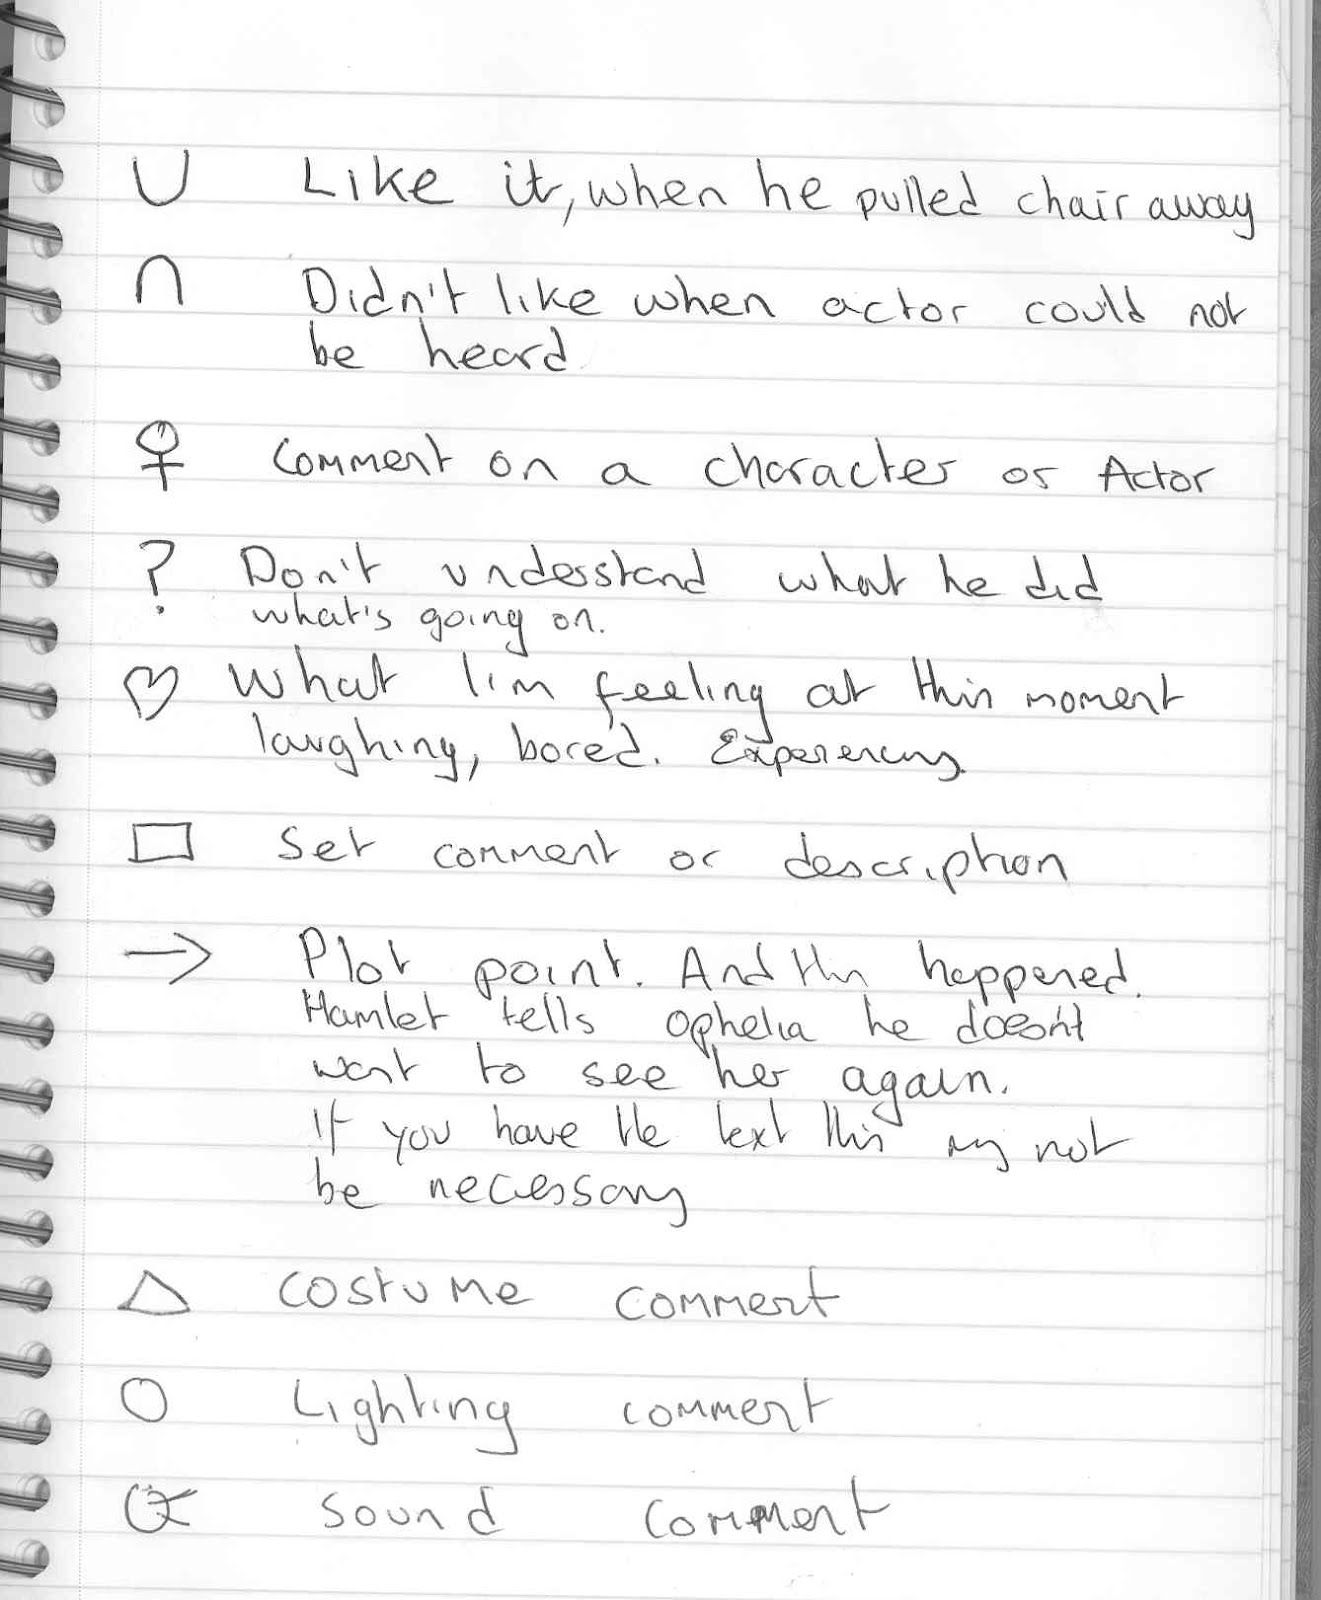 U Like it, when he pulled chair away
∩ Didn't like when actor could not
be heard
♀ Comment on a character or Actor
? Don't understand what he did
what's going on.
♡ What I'm feeling at this moment
laughing, bored. Experiencing
□ Set comment or description
→ Plot point. And this happened.
Hamlet tells Ophelia he doesn't
want to see her again.
If you have the text this my not
be necessary
△ costume comment
○ Lighting comment
sound comment